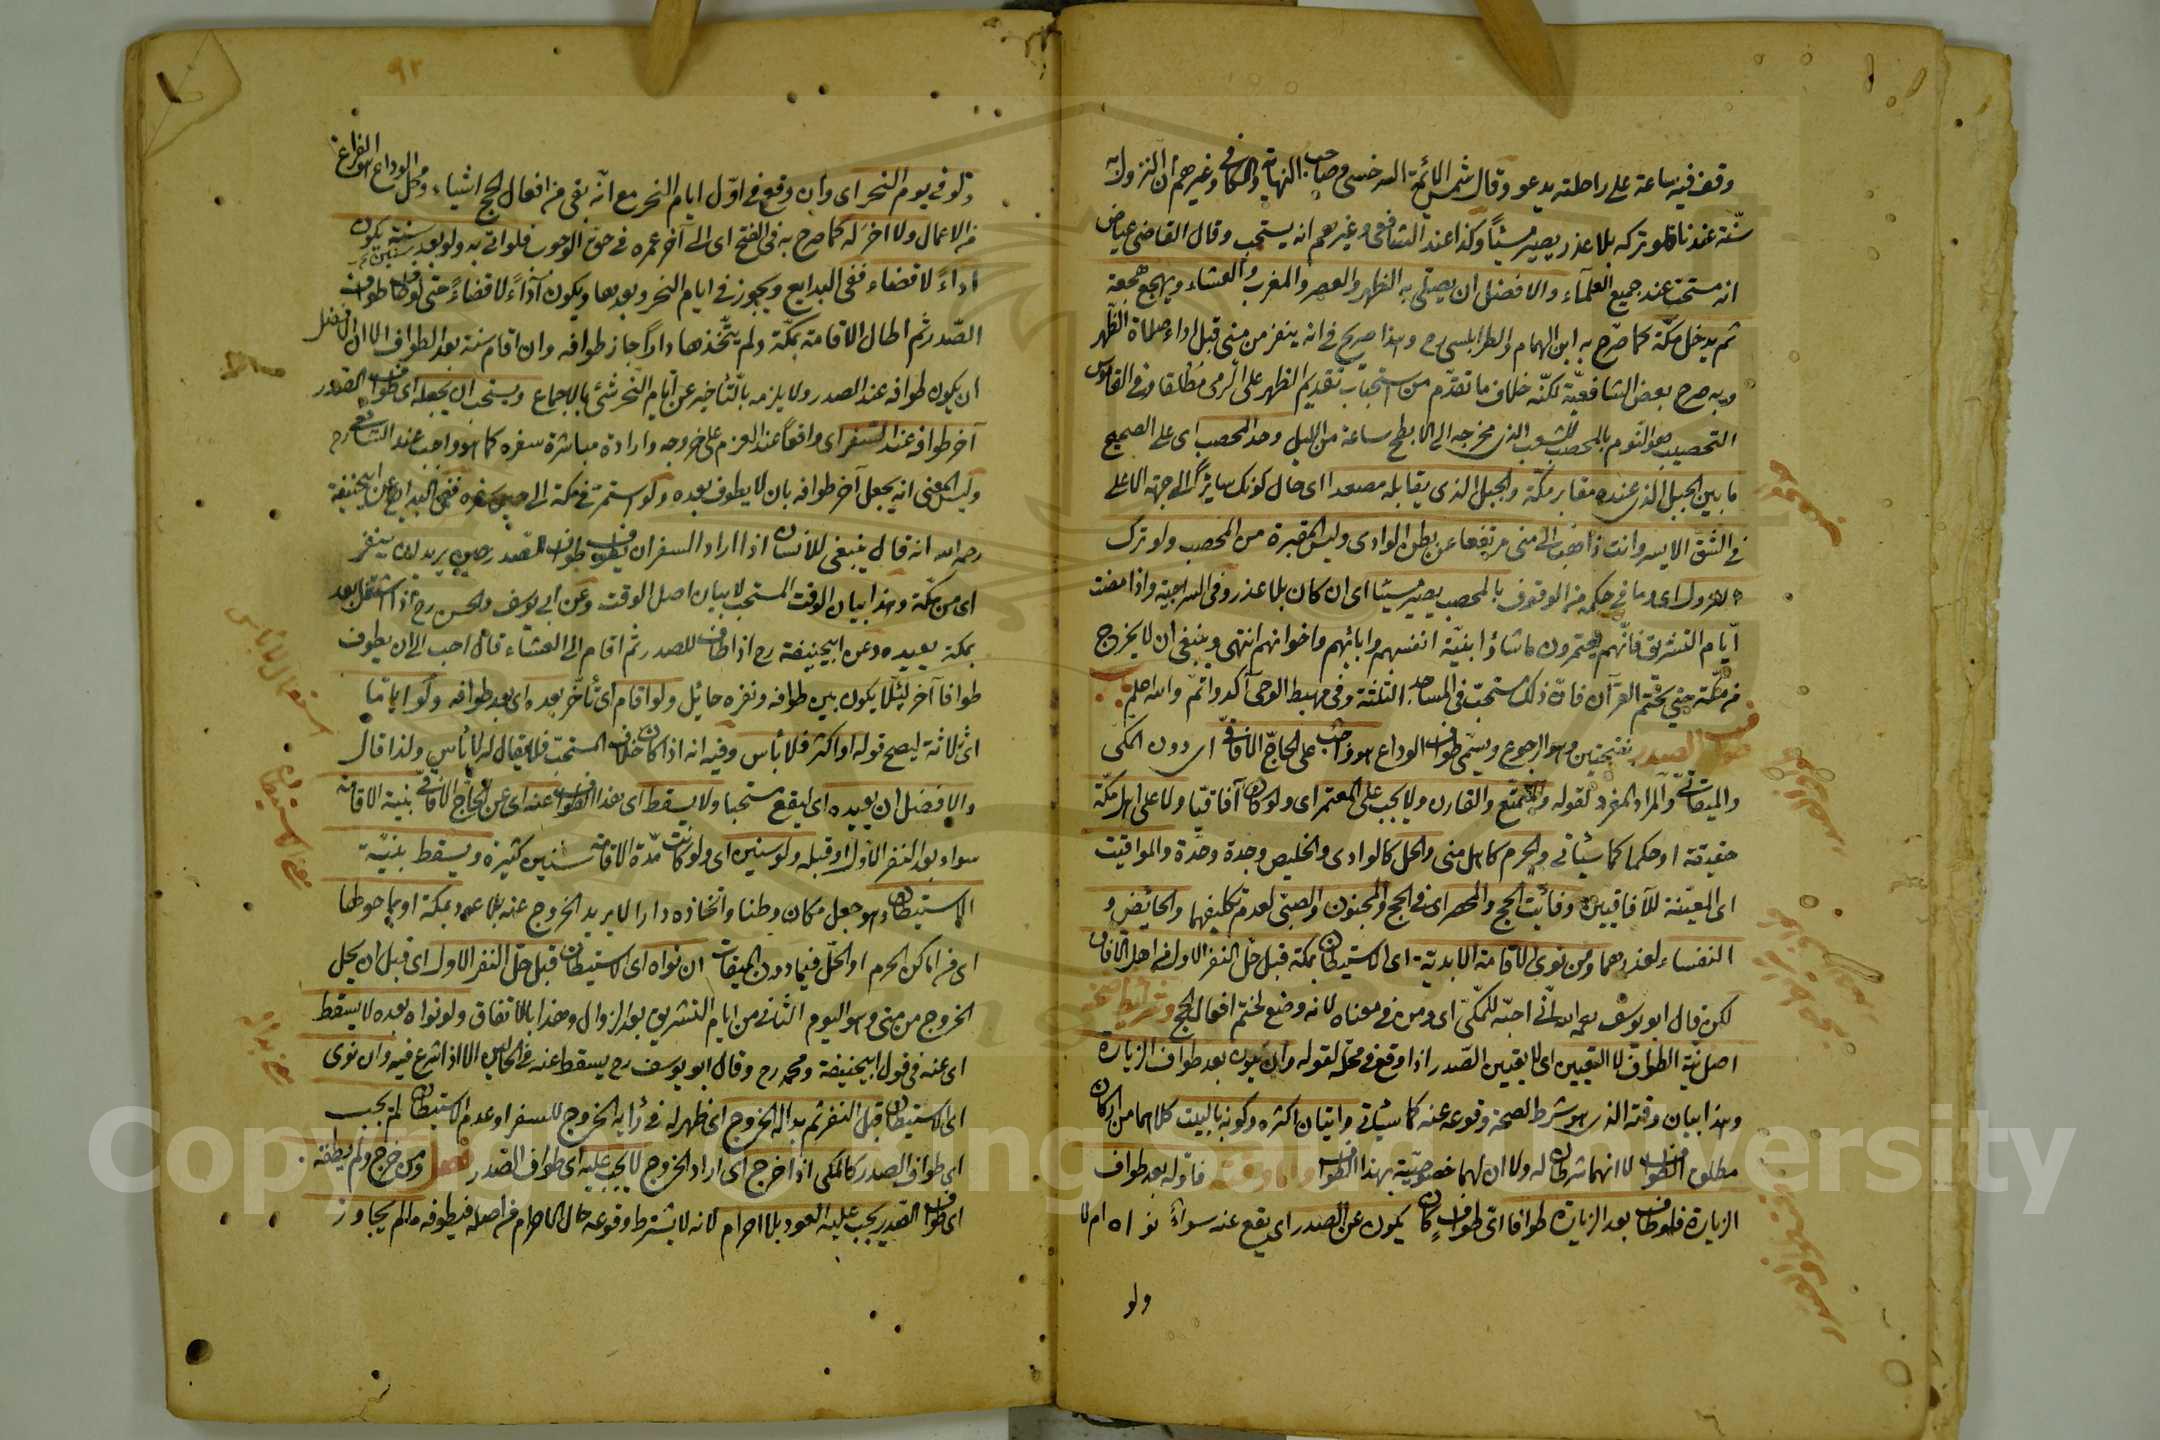 وقف فيه ساعة على راحلته يدعو وقال شمس الائمة السرخسي وصاحب النهاية والكافي وغيرهم ان النزول به
سنّة عندنا فلو تركه بلا عذر يصير مسيئاً وكذا عند الشافعي وغيرهم انه يستحب وقال القاضي عياض
انه مستحب عند جميع العلماء والافضل ان يصلّي به الظهر والعصر والمغرب والعشاء ويهجع هجعة
ثم يدخل مكّة كما صرّح به ابن الهمام والطرابلسي رح وهذا صريح في انه ينفر من منى قبل اداء صلاة الظهر
وبه صرح بعض الشافعيّة لكنّه خلاف ما تقدّم من استحباب تقديم الظهر على الرمي مطلقا وفي القاموس
التحصيب هو النوم بالمحصب الشعب الذي مخرجه الى الابطح ساعة من الليل وحد المحصب اي على الصحيح
ما بين الجبل الذي عنده مقابر مكّة والجبل الذي يقابله مصعدا اي حال كونك سائراً الى جهة الاعلى
في الشقّ الايسر وانت ذاهب الى منى مرتفعا عن بطن الوادي وليس المقبرة من المحصب ولو ترك
النزول اي وما في حكمه من الوقوف بالمحصب يصير مسيئا اي ان كان بلا عذر وفي السراجية واذا مضت
ايّام التشريق فانّهم يعتمرون ما شاؤا بنيّة انفسهم وابائهم واخوانهم انتهى وينبغي ان لا يخرج
من مكّة حتى يختم القرآن فان ذلك مستحبّ في المساجد الثلثة وفي مهبط الوحي آكد واتمّ والله اعلم باب
طواف الصدر بفتحتين وهو الرجوع ويسمّى طواف الوداع هو واجب على الحاجّ الآفاقيّ اي دون المكّي
والميقاتيّ والمراد المفرد لقوله والمتمتّع والقارن ولا يجب على المعتمر اي ولو كان آفاقيّا ولا على اهل مكّة
حقيقة او حكما كما سيأتي والحرم كاهل منى والحل كالوادي والخليص وجدة وحدّة والمواقيت
اي المعيّنة للآفاقيين وفائت الحج والمحصر اي في الحج والمجنون والصبيّ لعدم تكليفهما والحائض و
النفساء لعذرهما ومن نوى الاقامة الابديّة اي الاستيطان بمكة قبل حلّ النفر الاول من اهل الآفاق
لكن قال ابو يوسف رحمه الله انّي احبّه للمكّيّ اي ومن في معناه لانه وضع لختم افعال الحج وشرائط صحته
اصل نيّة الطواف لا التعيين اي لا تعيين الصدر اذا وقع في محلّه لقوله وان يكون بعد طواف الزيارة
وهذا بيان وقته الذي هو شرط لصحة وقوعه عنه كما سيأتي واتيان اكثره وكونه بالبيت كلاهما من اركان
مطلق الطواف لا انهما شرطان له ولا ان لهما خصوصيّة بهذا الطواف واما وقته فاوّله بعد طواف
الزيارة فلو طاف بعد الزيارة طوافا ايّ طواف كان يكون عن الصدر اي يقع عنه سواءً نواه ام لا
ولو
٩٢
ولو في يوم النحر اي وان وقع في اوّل ايام النحر مع انّه بقي من افعال الحج اشياء ومحل الوداع هو الفراغ
من الاعمال ولا آخر له كما صرح به في الفتح اي الى آخر عمره في حق الوجوب فلو اتى به ولو بعد سنة يكون
اداءً لا قضاء ففي البدايع ويجوز في ايام النحر وبعدها ويكون اداءً لا قضاءً حتى لو طاف طواف
الصّدر ثم اطال الاقامة بمكّة ولم يتّخذها داراً جاز طوافه وان اقام سنة بعد الطواف الا ان الافضل
ان يكون طوافه عند الصدر ولا يلزمه بالتأخير عن ايام النحر شئ بالاجماع ويستحب ان يجعله اي طواف الصدر
آخر طوافه عند السفر اي واقعاً عند العزم على خروجه وارادة مباشرة سفره كما هو واجب عند الشافعي رح
وليس المعنى انه يجعل آخر طوافه بان لا يطوف بعده ولو استمرّ في مكة الى حين سفره ففي البدايع عن ابي حنيفة
رحمه الله انه قال ينبغي للانسان اذا اراد السفر ان يطوف طواف الصدر حين يريد ان ينفر
اي من مكّة وهذا بيان الوقت المستحب لا بيان اصل الوقت وعن ابي يوسف والحسن رح اذا اشتغل بعد
بمكة يعيده وعن ابي حنيفة رح اذا طاف للصدر ثم اقام الى العشاء قال احب الى ان يطوف
طوافا آخر لئلّا يكون بين طوافه ونفره حايل ولو اقام اي تأخّر بعده اي بعد طوافه ولو ايامّا
اي ثلاثة ليصح قوله او اكثر فلا بأس وفيه انه اذا كان خلاف المستحبّ فلا يقال له لا بأس ولذا قال
والافضل ان يعيده اي ليقع مستحبا ولا يسقط اي هذا الطواف عنه اي عن الحاجّ الآفاقيّ بنية الاقامة
سواء بعد النفر الاول او قبله ولو سنين اي ولو كانت مدّة الاقامة سنين كثيرة ويسقط بنيّة
الاستيطان وهو جعل مكان وطنا واتخاذه دارا لا يريد الخروج عنه بلا عود بمكة او بما حولها
اي من اماكن الحرم او الحلّ فيما دون الميقات ان نواه اي الاستيطان قبل حلّ النفر الاول اي قبل ان يحل
الخروج من منى وهو اليوم الثاني من ايام التشريق بعد الزوال وهذا بالاتفاق ولو نواه بعده لا يسقط
اي عنه في قول ابي حنيفة ومحمد رح وقال ابو يوسف رح يسقط عنه في الحالين الا اذا شرع فيه وان نوى
اي الاستيطان قبل النفر ثم بدا له الخروج اي ظهر له في رأيه الخروج للسفر او عدم الاستيطان لم يجب
اي طواف الصدر كالمكي اذا خرج اي اراد الخروج لا يجب عليه اي طواف الصدر فصل ومن خرج ولم يطفه
اي طواف الصدر يجب عليه العود بلا احرام لانه لا يشترط وقوعه حال الاحرام من اصله فيطوفه ما لم يجاوز
Copyright © King Saud University